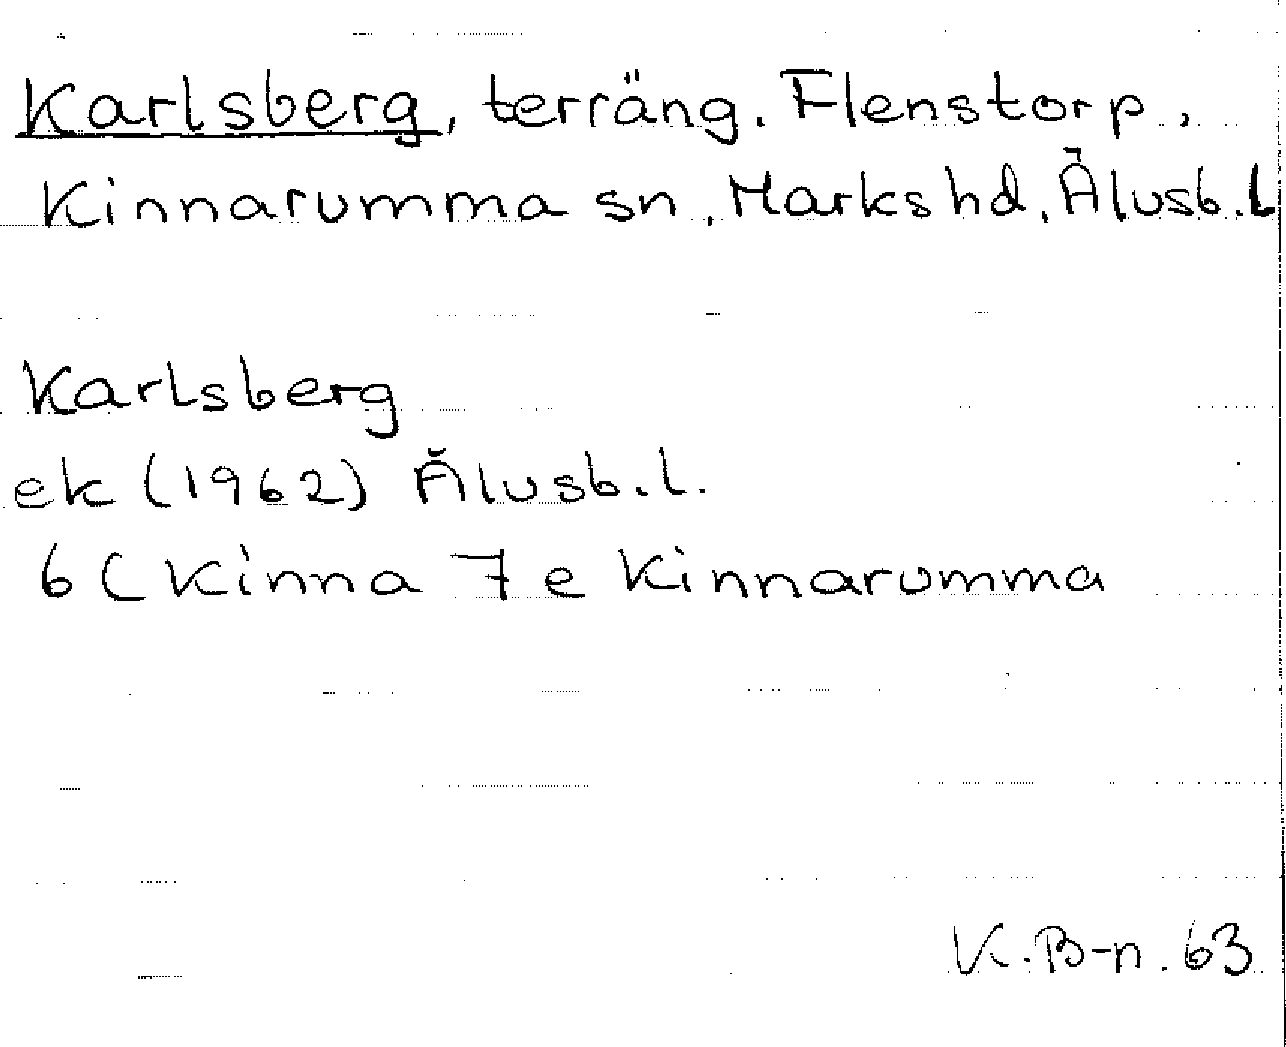 Karlsberg, terräng. Flenstorp,
Kinnarumma sn, Marks hd, Älvsb. l
Karlsberg
ek (1962) Älvsb. l.
6 C Kinna 7 e Kinnarumma
K. B-n. 63